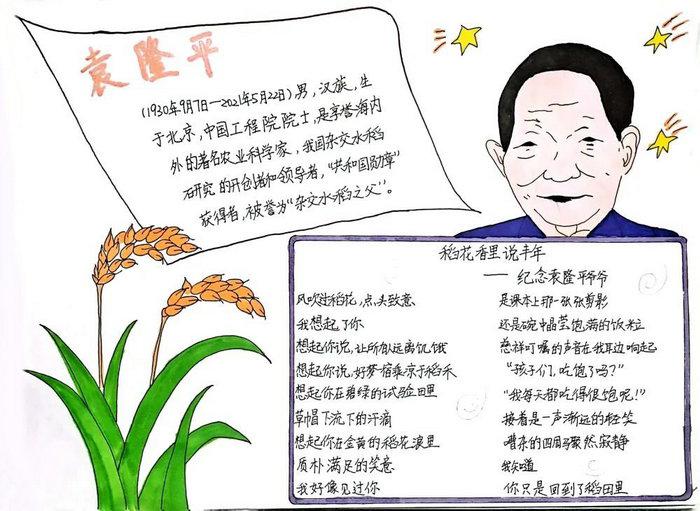 袁隆平
(1930年9月7日—2021年5月22日)男,汉族,生
于北京,中国工程院院士,是享誉海内
外的著名农业科学家,我国杂交水稻
研究的开创者和领导者,“共和国勋章”
获得者,被誉为“杂交水稻之父”。
稻花香里说丰年
——纪念袁隆平爷爷
风吹过稻花,点头致意
我想起了你
想起你说,让所有人远离饥饿
想起你说,好梦宿乘凉于稻禾
想起你在碧绿的试验田里
草帽下流下的汗滴
想起你在金黄的稻花浪里
质朴满足的笑意
我好像见过你
是课本上那一张张剪影
还是碗中晶莹饱满的饭粒
慈祥叮嘱的声音在我耳边响起
“孩子们,吃饱了吗?”
“我每天都吃得很饱呢!”
接着是一声渐远的轻笑
嘈杂的四周骤然寂静
我知道
你只是回到了稻田里